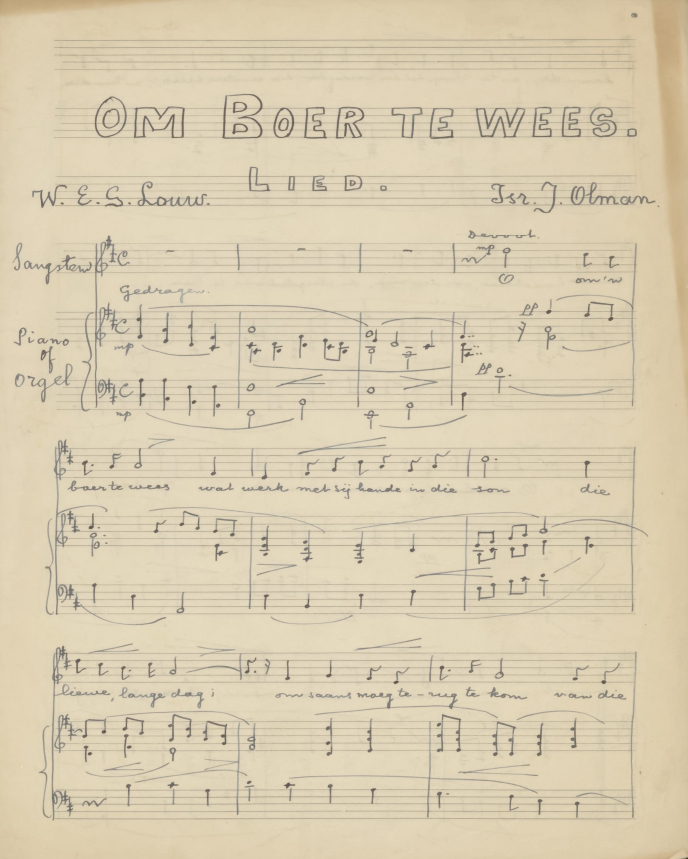 OM BOER TE WEES.
LIED.
W. E. G. Louw.
Isr. J. Olman.
Devoot.
mp
Sangstem
O om 'n
Gedragen.
pp
Piano
of
Orgel
mp
pp
mp
boer te wees wat werk met sy hande in die son die
liewe, lange dag; om saans moeg te-rug te kom van die